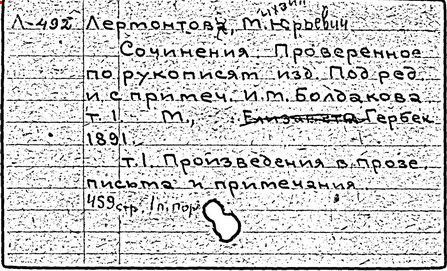 Л-492 Лермонтов, М. Юрьевич
Сочинения. Проверенное
по рукописям изд. Под ред.
и с примеч. И.М. Болдакова
т. 1. - М., Елизавета Гербек
1891.
т.1. Произведения в прозе,
письма и примечания
459 стр. 1 п. пор.